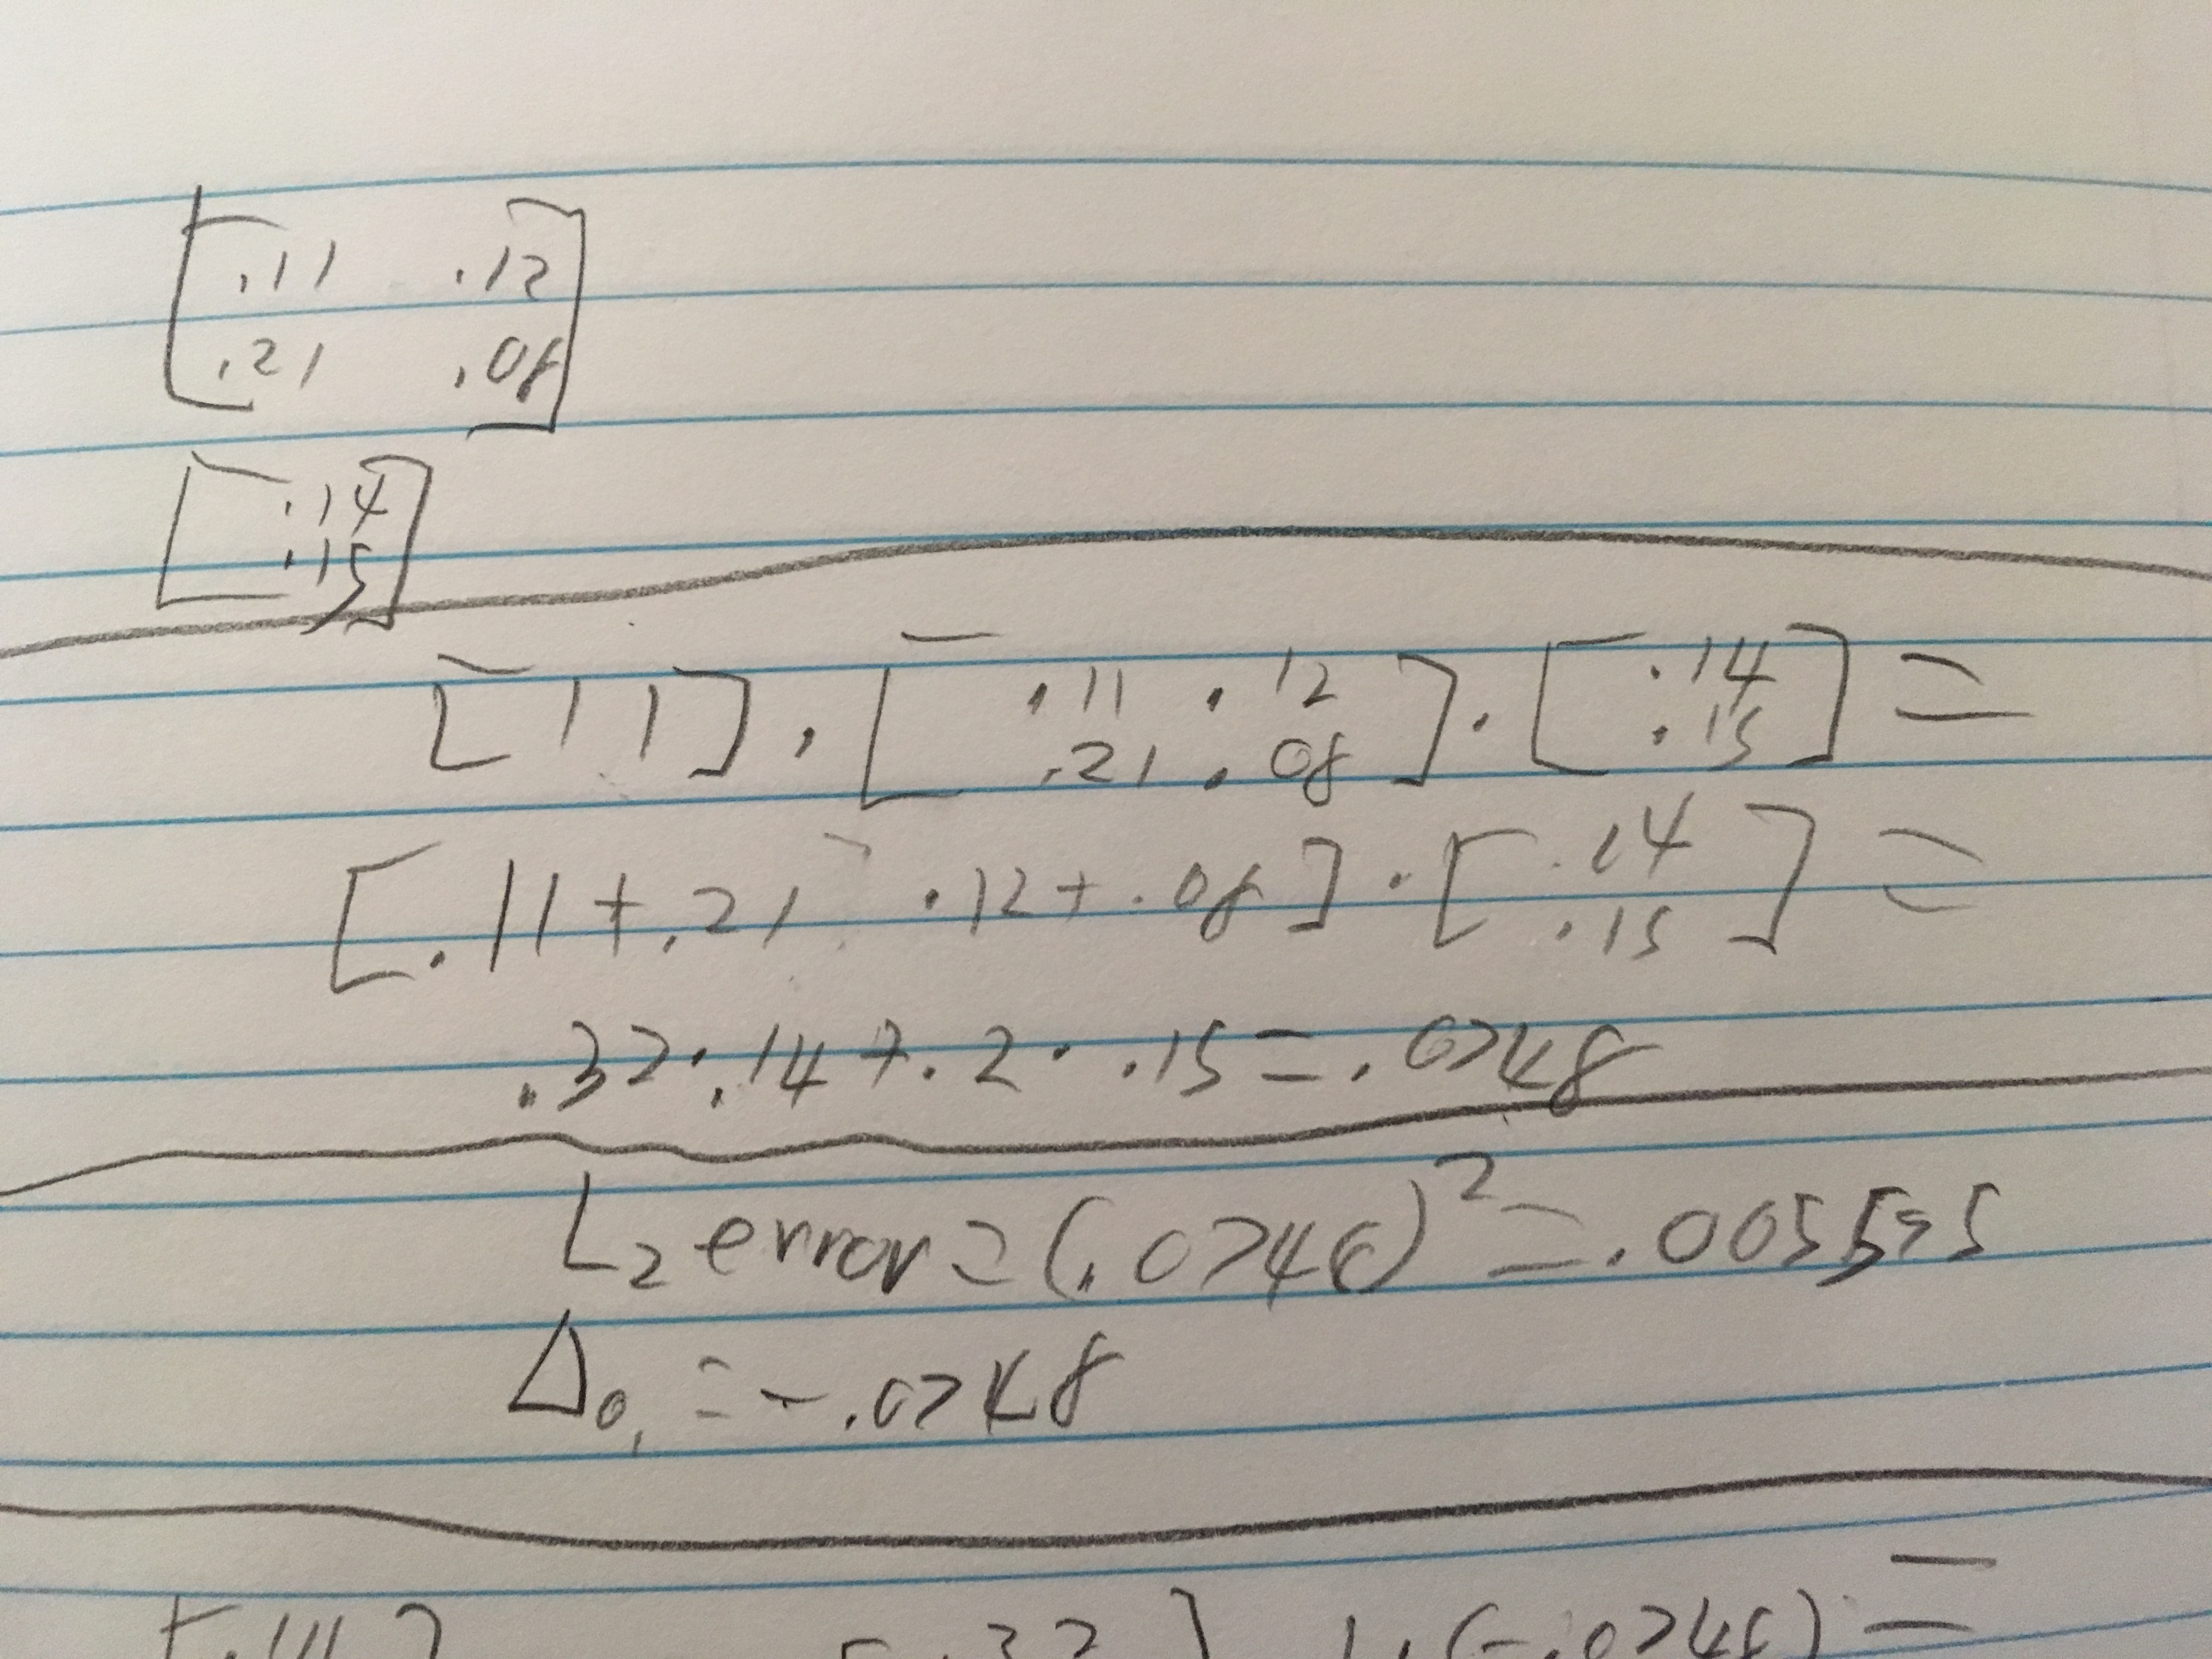 [.11 .12
.21 .08]
[.14
.15]
[1 1] · [.11 .12
.21 .08] · [.14
.15] =
[.11+.21 .12+.08] · [.14
.15] =
.32·.14+.2·.15=.0748
L₂ error=(.0748)²=.005595
Δ₀₁=-.0748
.32] (-.0748)=